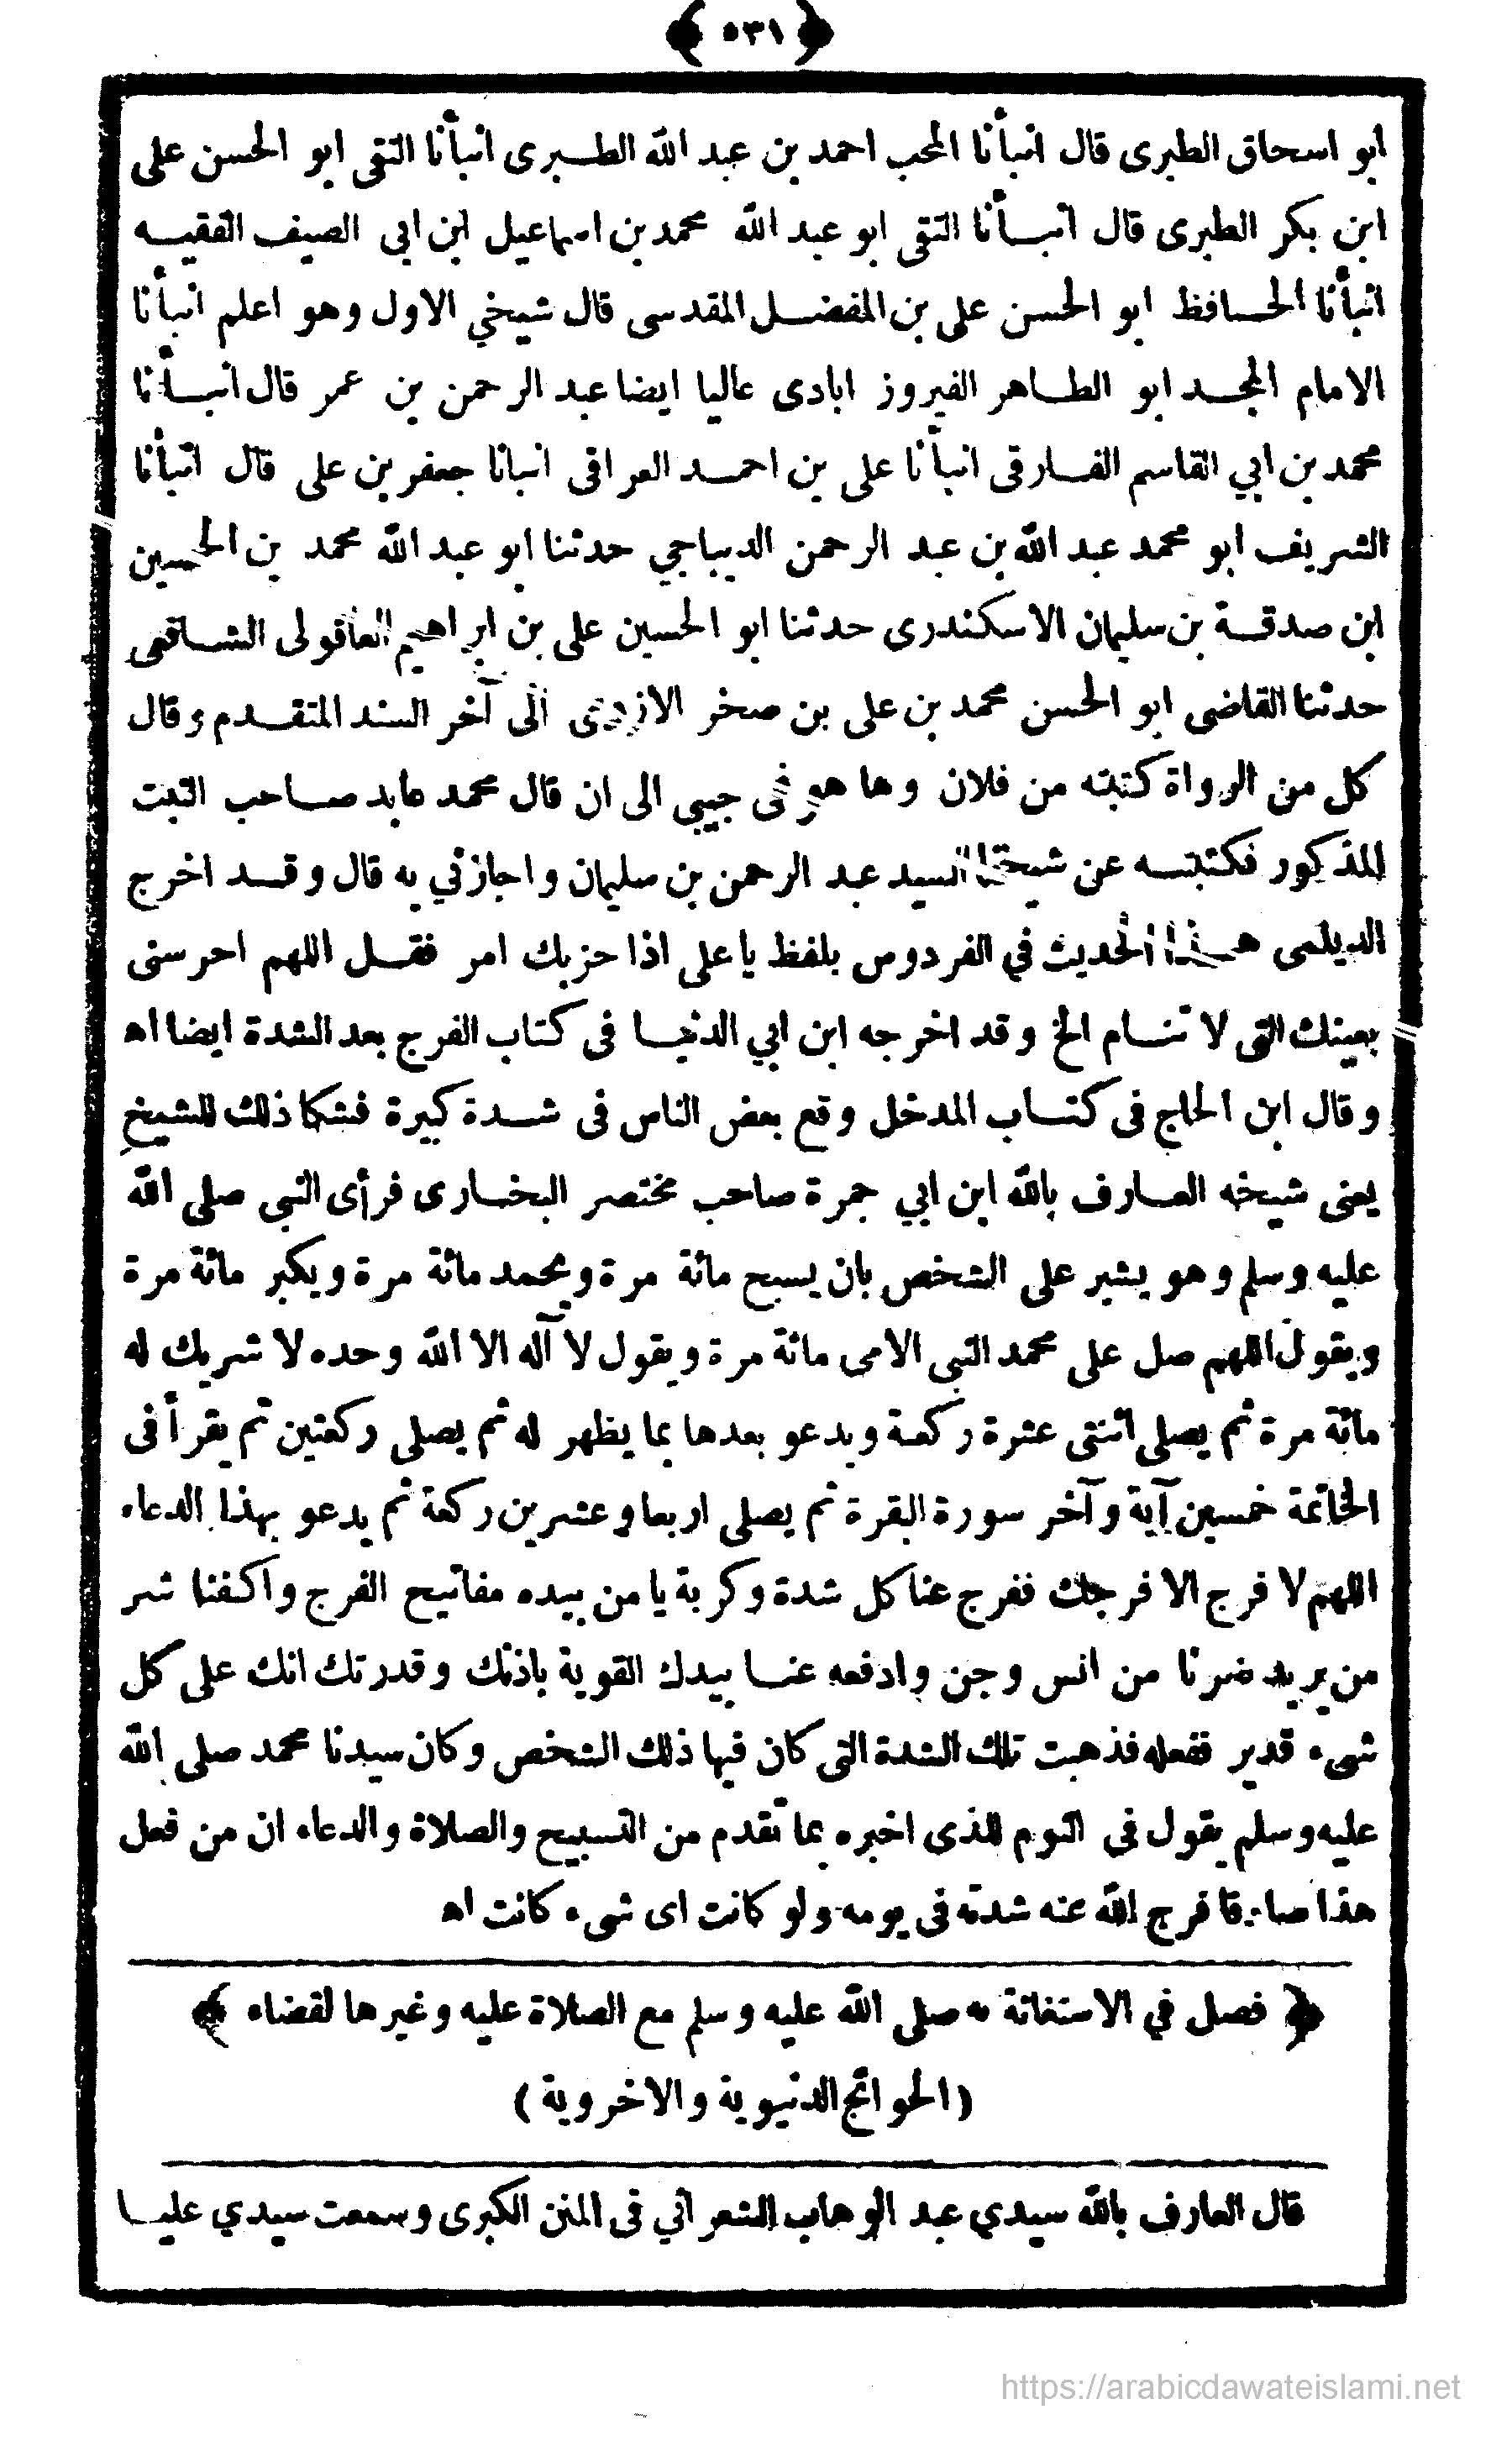 ﴿ ٥٣١ ﴾
ابو اسحاق الطبرى قال انبأنا المحب احمد بن عبد الله الطـبرى انبأنا التقى ابو الحسن على
ابن بكر الطبرى قال انبـأنا التقى ابو عبد الله محمد بن اسماعيل ابن ابي الصيف الفقيـه
انبأنا الحـافظ ابو الحسن على بن المفضـل المقدسى قال شيخي الاول وهو اعلم انبأنا
الامام المجـد ابو الطـاهر الفيروز ابادى عاليا ايضا عبد الرحمن بن عمر قال انبـأنا
محمد بن ابي القاسم الفـارقى انبأنا على بن احمـد العراقى انبانا جعفر بن على قال انبأنا
الشريف ابو محمد عبد الله بن عبد الرحمن الديباجي حدثنا ابو عبد الله محمد بن الحسين
ابن صدقـة بن سليمان الاسكندرى حدثنا ابو الحسين على بن ابراهيم العاقولى الشـافعى
حدثنا القاضى ابو الحسن محمد بن على بن صخر الازدى الى آخر السند المتقـدم وقال
كل من الرواة كتبته من فلان وها هو فى جيبى الى ان قال محمد عابد صـاحب الثبت
المذكور فكتبتـه عن شيخنا السيد عبد الرحمن بن سليمان واجازني به قال وقـد اخرج
الديلمى هـذا الحديث في الفردوس بلفظ يا على اذا حزبك امر فقـل اللهم احرسنى
بعينك التى لا تنـام الخ وقد اخرجه ابن ابي الدنيـا فى كتاب الفرج بعد الشدة ايضا اه
وقال ابن الحاج فى كتـاب المدخل وقع بعض الناس فى شـدة كبيرة فشكا ذلك للشيخ
يعنى شيخه العـارف بالله ابن ابي جمرة صاحب مختصر البخـارى فرأى النبي صلى الله
عليه وسلم وهو يشير على الشخص بان يسبح مائة مرة ويحمد مائة مرة ويكبر مائة مرة
ويقول اللهم صل على محمد النبي الامى مائة مرة ويقول لا آله الا الله وحده لا شريك له
مائة مرة ثم يصلى اثنتى عشرة ركعة ويدعو بعدها بما يظهر له ثم يصلى ركعتين ثم يقرأ فى
الخاتمة خمسين آية وآخر سورة البقرة ثم يصلى اربعا وعشرين ركعة ثم يدعو بهذا الدعاء
اللهم لا فرج الا فرجك ففرج عنا كل شدة وكربة يا من بيده مفاتيح الفرج واكفنا شر
من يريد ضرنا من انس وجن وادفعه عنـا بيدك القوية باذنك وقدرتك انك على كل
شىء قدير ففعله فذهبت تلك الشدة التى كان فيها ذلك الشخص وكان سيدنا محمد صلى الله
عليه وسلم يقول فى النوم للذى اخبره بما تقدم من التسبيح والصلاة والدعاء ان من فعل
هذا صادقا فرج الله عنه شدته فى يومه ولو كانت اى شىء كانت اه
﴿ فصل في الاستغاثة به صلى الله عليه وسلم مع الصلاة عليه وغيرها لقضاء ﴾
(الحوائج الدنيوية والاخروية)
قال العارف بالله سيدي عبد الوهاب الشعراني فى المنن الكبرى وسمعت سيدي عليـا
https://arabicdawateislami.net